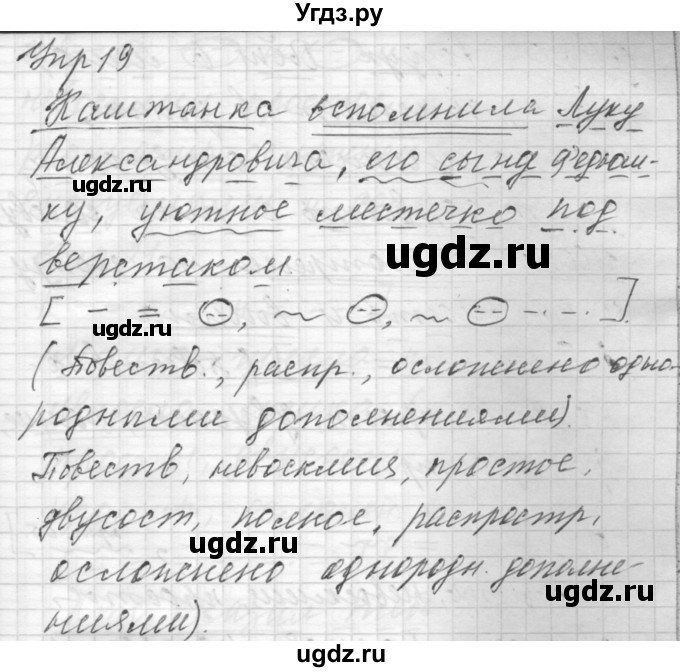 Угдз.ру
Упр 19
Каштанка вспомнила Луку
Александровича, его сына Федюш-
ugdz.ru
ку, уютное местечко под
ugdz.ru
верстаком.
[ - = (--), ~ (--), ~ (--) -.-.- ].
ugdz.ru
(Повеств., распр., осложнено одно-
родными дополнениями).
Повеств, невосклиц, простое,
двусост, полное, распростр,
ugdz.ru
осложнено однородн. дополне-
ugdz.ru
ниями).
Угдз.ру